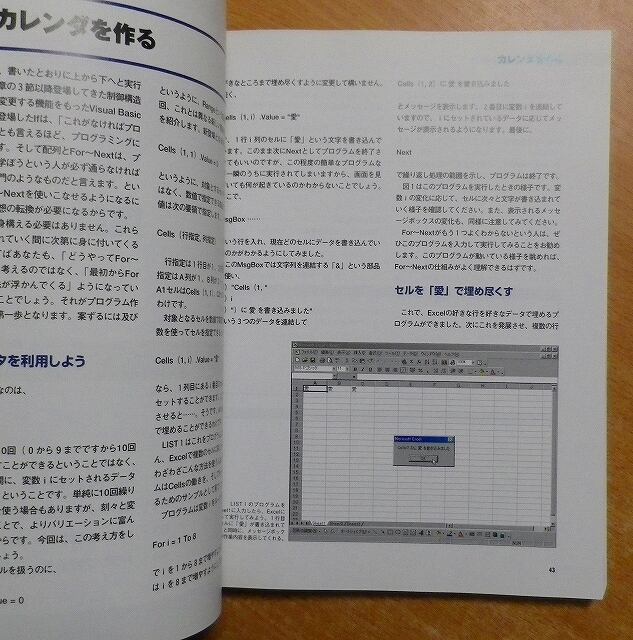 カレンダを作る
、書いたとおりに上から下へと実行
章の3節以降登場してきた制御構造
変更する機能をもったVisual Basic
登場したIfは、「これがなければプロ
とも言えるほど、プログラミングに
す。そして配列とFor〜Nextは、プ
学ぼうという人が必ず通らなければ
門のようなものだと言えます。とい
〜Nextを使いこなせるようになるに
想の転換が必要になるからです。
身構える必要はありません。これら
れていく間に次第に身に付いてくる
ばあなたも、「どうやってFor〜
考えるのではなく、「最初からFor
が浮かんでくる」ようになってい
ことでしょう。それがプログラム作
第一歩となります。案ずるには及び
タを利用しよう
なのは、
0回（0から9までですから10回
すことができるということではなく、
間に、変数iにセットされるデータ
ということです。単純に10回繰り
を使う場合もありますが、刻々と変
ことで、よりバリエーションに富ん
からです。今回は、この考え方をし
しょう。
ルを扱うのに、
ue = 0
というように、Range
回、これとは異なる
を紹介します。
Cells (1,1) .Value =
というように、対象と
はなく、数値で指定する
値は次の要領で指定し
Cells (行指定, 列指定)
行指定は1行目が1、
指定はA列が1、B列が2
A1セルはCells(1,1)
わけです。
対象となるセルを数値で
数を使ってセルを指定でき
Cells (1, i) .Value = "愛"
なら、1列目にある i 番目の
セットすることができます
させると……。そうです、
で埋めることができるの
LIST1はこれをプログラ
ん、Excelで複数のセルに
わざわざこんな方法を使う
ムはCellsの働きを、そして
るためのサンプルとして
プログラムは変数 i を
For i = 1 To 8
で i を1から8まで増やす
は i を8まで増やすように
好きなところまで埋め尽くすように変更して構いません。
続く、
Cells (1, i) .Value = "愛"
、1行 i 列のセルに「愛」という文字を書き込んで
ます。このまま次にNextとしてプログラムを終了さ
てもいいのですが、この程度の簡単なプログラムな
一瞬のうちに実行されてしまいますから、画面を見
いても何が起きているのかわからないことでしょう。
こで、
MsgBox ……
いう行を入れ、現在どのセルにデータを書き込んでい
のかがわかるようにしてみました。
このMsgBoxでは文字列を連結する「&」という部品
使い、
) "Cells (1, "
) i
) ") に 愛 を書き込みました"
いう3つのデータを連結して
Cells (1, 2) に 愛 を書き込みました
とメッセージを表示します。2番目に変数 i を連結して
いますので、i にセットされているデータに応じてメッ
セージが表示されるようになります。最後に、
Next
で繰り返し処理の範囲を示し、プログラムは終了です。
図1はこのプログラムを実行したときの様子です。変
数 i の変化に応じて、セルに次々と文字が書き込まれて
いく様子を確認してください。また、表示されるメッセ
ージボックスの変化も、同様に注意してみてください。
For〜Nextがもう1つよくわからないという人は、ぜ
ひこのプログラムを入力して実行してみることをお勧め
します。このプログラムが動いている様子を眺めれば、
For〜Nextの仕組みがよく理解できるはずです。
セルを「愛」で埋め尽くす
これで、Excelの好きな行を好きなデータで埋めるプ
ログラムができました。次にこれを発展させ、複数の行
愛 愛 愛
Microsoft Excel
OK
LIST 1のプログラムを
Excelに入力したら、Excelに
って実行してみよう。1行目
セルに「愛」が書き込まれて
と同時に、メッセージボック
作業内容を表示してくれる。
43